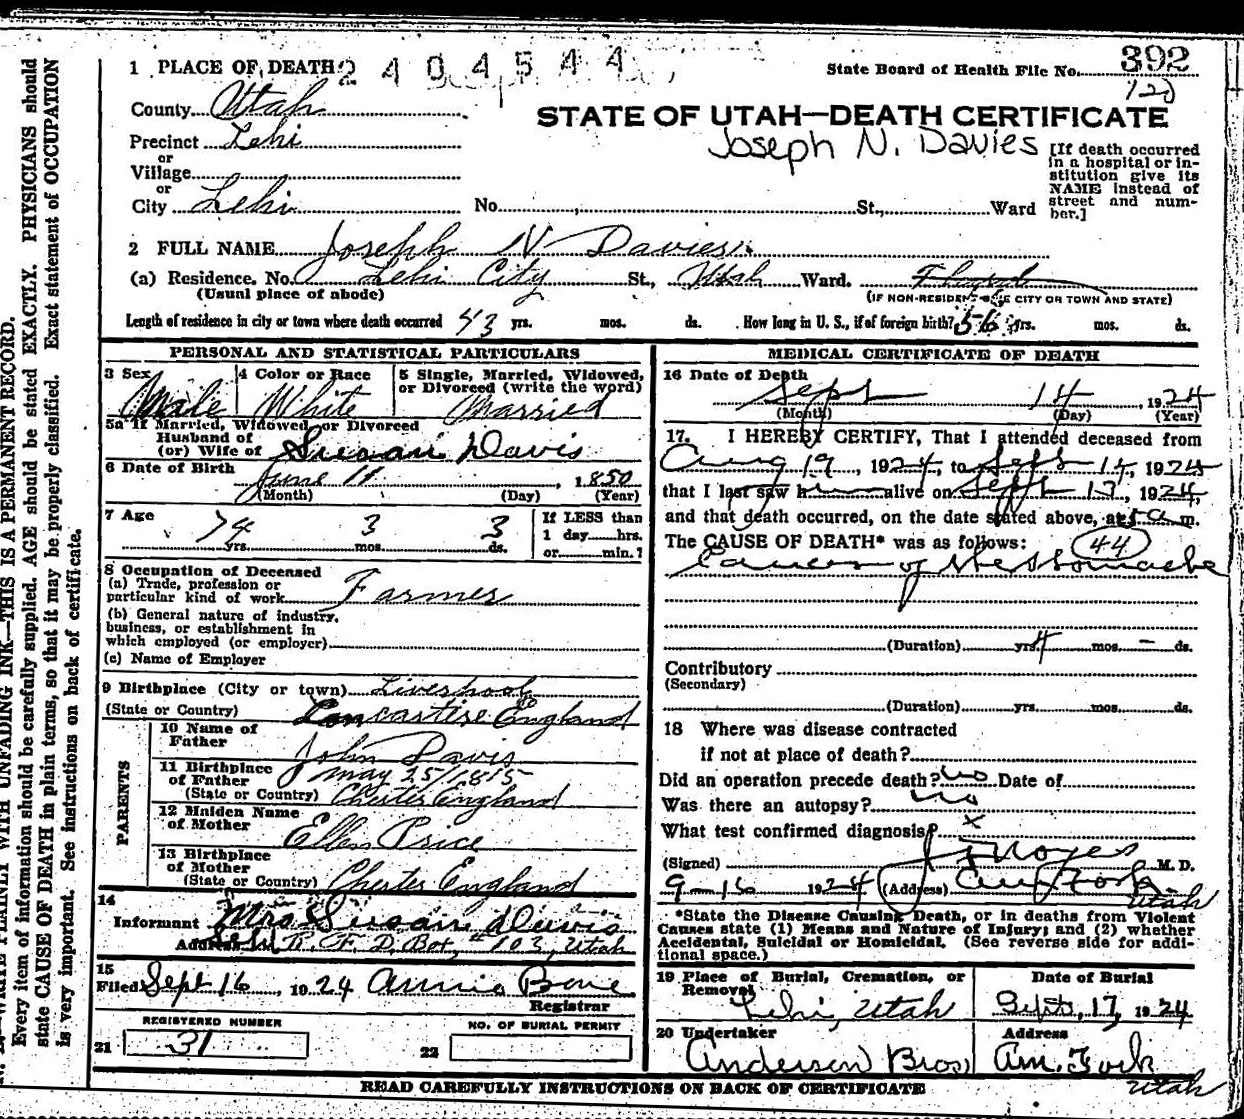 1 PLACE OF DEATH 2404544
State Board of Health File No. 392
120
County Utah
STATE OF UTAH—DEATH CERTIFICATE
Precinct Lehi
Joseph N. Davies
or
Village
or
City Lehi No. St., Ward
[If death occurred
in a hospital or in-
stitution give its
NAME instead of
street and num-
ber.]
2 FULL NAME Joseph N Davies
(a) Residence. No. Lehi City St., Utah Ward.
(Usual place of abode)
(IF NON-RESIDENT GIVE CITY OR TOWN AND STATE)
Length of residence in city or town where death occurred 43 yrs. mos. ds. How long in U. S., if of foreign birth? 56 yrs. mos. ds.
PERSONAL AND STATISTICAL PARTICULARS
3 Sex
Male
4 Color or Race
White
5 Single, Married, Widowed,
or Divorced (write the word)
Married
5a If Married, Widowed, or Divorced
Husband of
(or) Wife of Susan Davis
6 Date of Birth
June 11, 1850
(Month) (Day) (Year)
7 Age
74 yrs. 3 mos. 3 ds.
If LESS than
1 day hrs.
or min.?
8 Occupation of Deceased
(a) Trade, profession or
particular kind of work Farmer
(b) General nature of industry,
business, or establishment in
which employed (or employer)
(c) Name of Employer
9 Birthplace (City or town) Liverpool
(State or Country) Lancastise England
PARENTS
10 Name of
Father John Davis
11 Birthplace
of Father may 25/1815
(State or Country) Chester England
12 Maiden Name
of Mother Ellen Price
13 Birthplace
of Mother
(State or Country) Chester England
14
Informant Mrs. Susan Davis
Address Lehi R. F. D. Box 103, Utah
15
Filed Sept 16, 1924 Annie Bone
Registrar
REGISTERED NUMBER
21 31
NO. OF BURIAL PERMIT
22
MEDICAL CERTIFICATE OF DEATH
16 Date of Death
Sept 14, 1924
(Month) (Day) (Year)
17. I HEREBY CERTIFY, That I attended deceased from
Aug 19, 1924, to Sept 14, 1924
that I last saw him alive on Sept 13, 1924,
and that death occurred, on the date stated above, at 5 a m.
The CAUSE OF DEATH* was as follows: 44
Cancer of the Stomache
(Duration) yrs. 4 mos. - ds.
Contributory
(Secondary)
(Duration) yrs. mos. ds.
18 Where was disease contracted
if not at place of death?
Did an operation precede death? no Date of
Was there an autopsy? no
What test confirmed diagnosis? x
(Signed) J F Noyes M. D.
9-16 1924 (Address) Am Fork
Utah
*State the Disease Causing Death, or in deaths from Violent
Causes state (1) Means and Nature of Injury; and (2) whether
Accidental, Suicidal or Homicidal. (See reverse side for addi-
tional space.)
19 Place of Burial, Cremation, or
Removal
Lehi, Utah
Date of Burial
Sept. 17, 1924
20 Undertaker
Anderson Bros
Address
Am. Fork
Utah
READ CAREFULLY INSTRUCTIONS ON BACK OF CERTIFICATE
WRITE PLAINLY WITH UNFADING INK—THIS IS A PERMANENT RECORD.
Every item of information should be carefully supplied. AGE should be stated EXACTLY. PHYSICIANS should
state CAUSE OF DEATH in plain terms, so that it may be properly classified. Exact statement of OCCUPATION
is very important. See instructions on back of certificate.